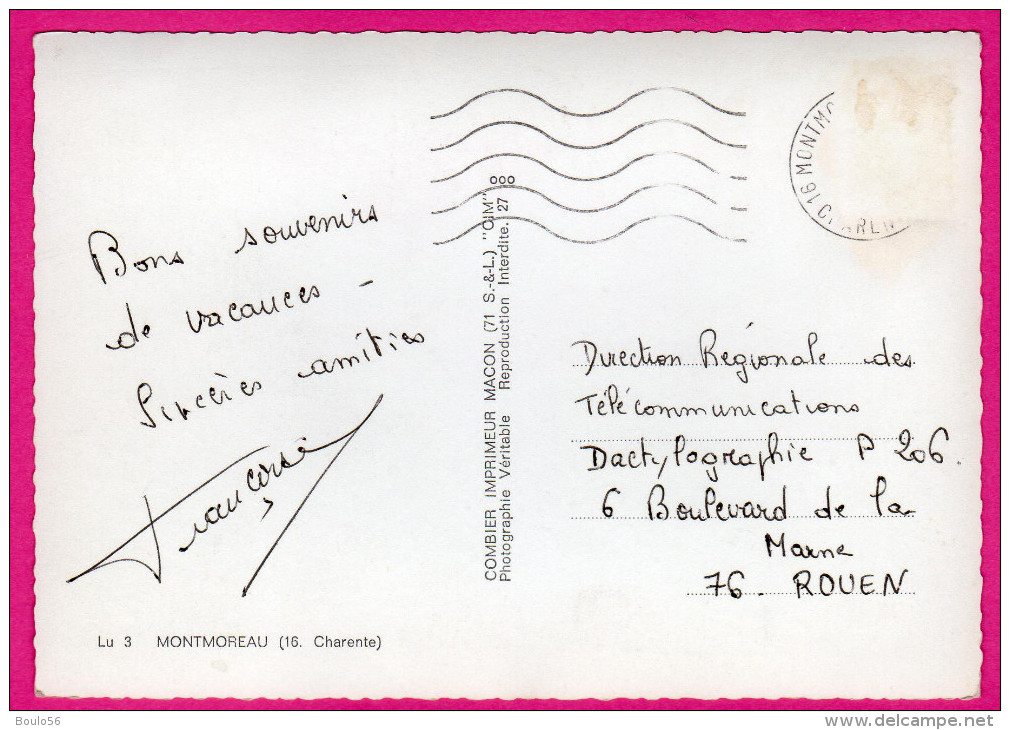 Bons souvenirs
de vacances –
Sincères amitiés
Françoise
Lu 3 MONTMOREAU (16. Charente)
COMBIER IMPRIMEUR MACON (71 S.-&-L.) "CIM"
Photographie Véritable Reproduction Interdite. 27
ooo
16 MONTMO
Direction Régionale des
Télécommunications
Dactylographie P 206.
6 Boulevard de la
Marne
76. ROUEN
Boulo56
www.delcampe.net